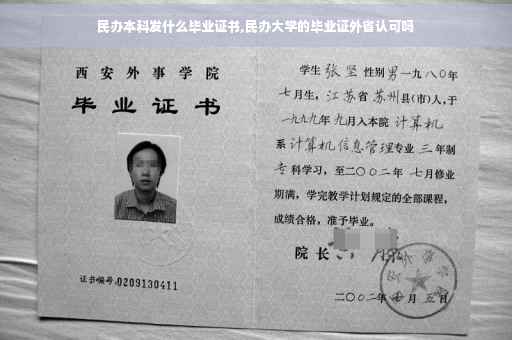 民办本科发什么毕业证书,民办大学的毕业证外省认可吗
西安外事学院
毕业证书
证书编号:0209130411
学生 张坚 性别 男 一九八〇年
七月生，江苏省 苏州县(市)人，于
一九九九年 九月入本院 计算机
系 计算机信息管理专业 三 年制
专科学习，至二〇〇二年 七月修业
期满，学完教学计划规定的全部课程，
成绩合格，准予毕业。
院长
二〇〇二年 月 五日